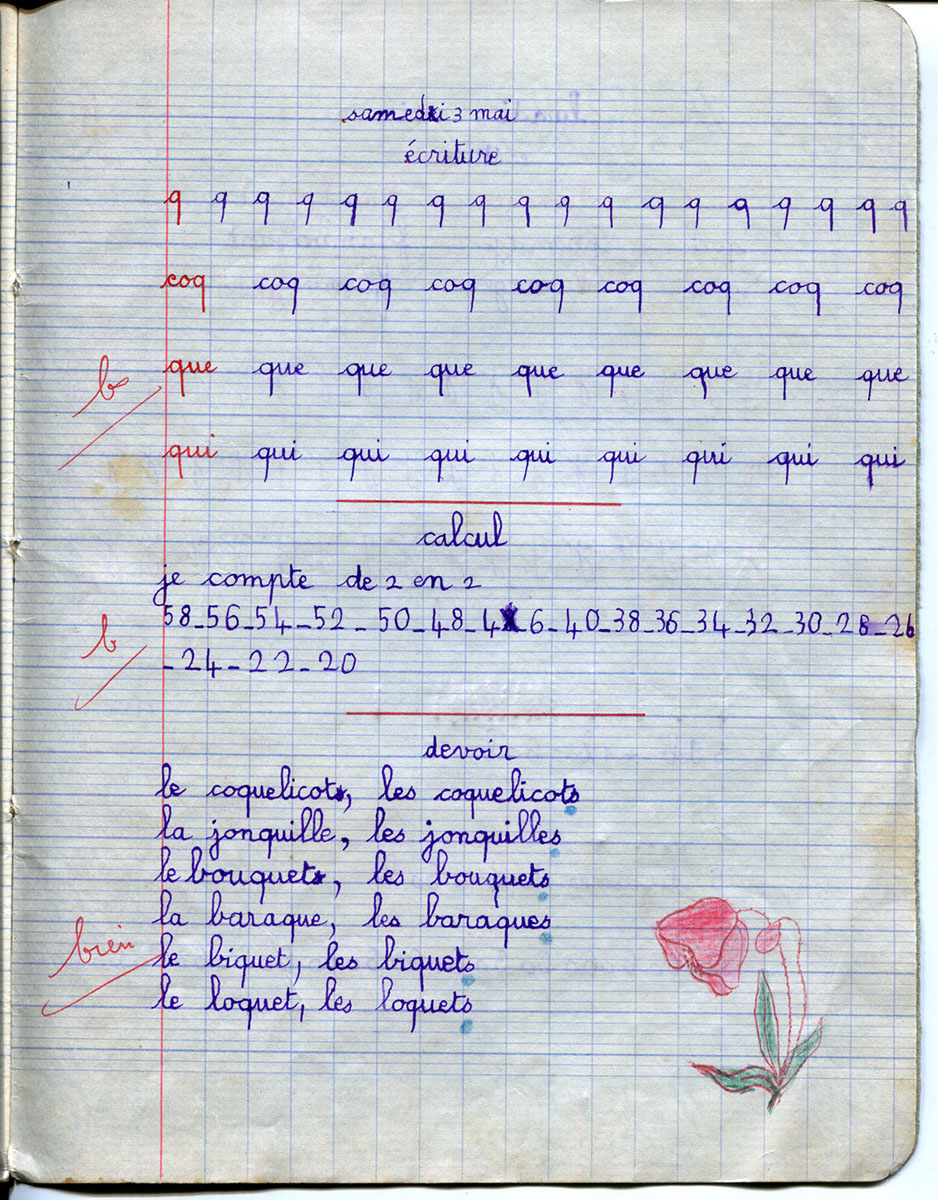 samedi 3 mai
écriture
q q q q q q q q q q q q q q q q q q
coq coq coq coq coq coq coq coq coq
b
que que que que que que que que que
qui qui qui qui qui qui qui qui qui
calcul
je compte de 2 en 2
58_56_54_52_50_48_46_40_38_36_34_32_30_28_26
b
_24_22_20
devoir
le coquelicot, les coquelicots
la jonquille, les jonquilles
le bouquet, les bouquets
la baraque, les baraques
bien
le biquet, les biquets
le loquet, les loquets